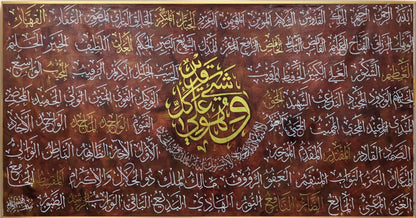 الله الرحمن الرحيم الملك القدوس السلام المؤمن المهيمن العزيز الجبار المتكبر الخالق البارئ المصور الغفار
القهار الوهاب الرزاق الفتاح العليم القابض الباسط الخافض الرافع المعز المذل السميع البصير الحكم العدل اللطيف الخبير الحليم
العظيم الغفور الشكور العلي الكبير الحفيظ المقيت الحسيب الجليل الكريم الرقيب المجيب
وهو على كل شيء قدير
الواسع الحكيم الودود المجيد الباعث الشهيد الحق الوكيل القوي المتين الولي الحميد
المحصي المبدئ المعيد المحيي المميت الحي القيوم الواجد الماجد الواحد
الصمد القادر المقتدر المقدم المؤخر الأول الآخر الظاهر الباطن الوالي
المتعالي البر التواب المنتقم العفو الرؤوف مالك الملك ذو الجلال والإكرام المقسط
الجامع الغني المغني المانع الضار النافع النور الهادي البديع الباقي الوارث الرشيد الصبور